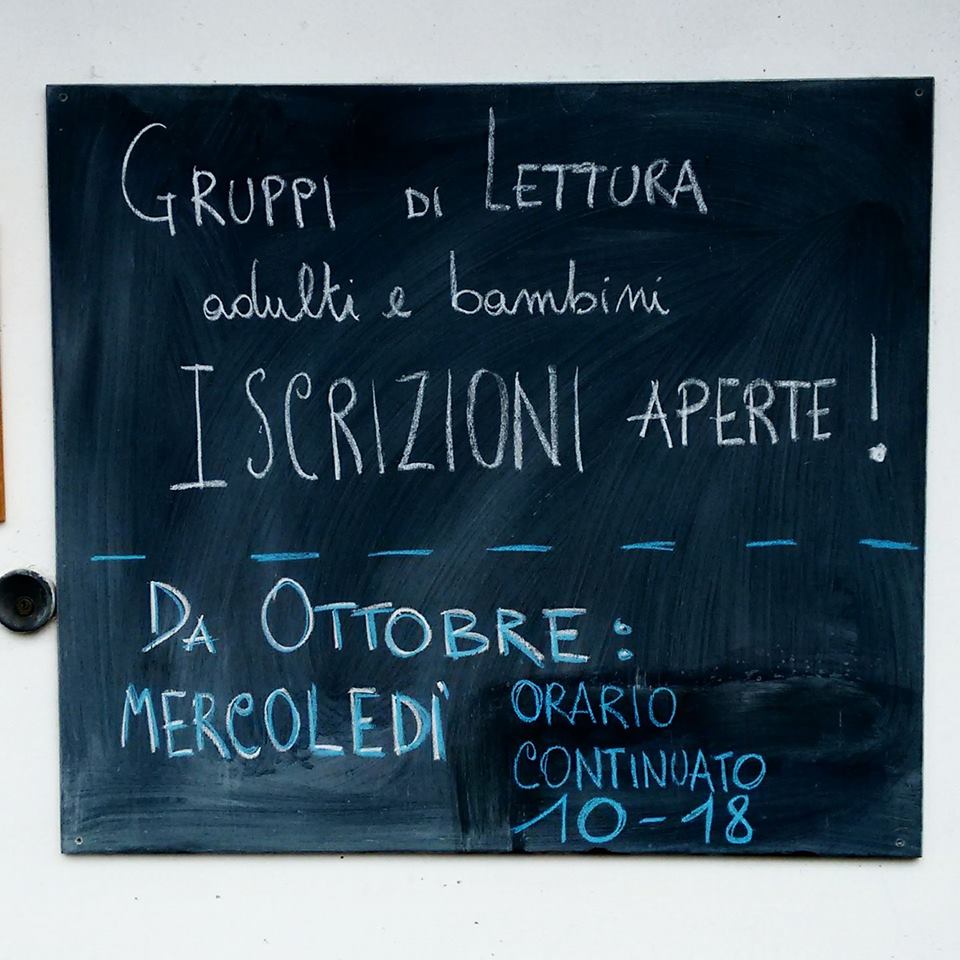 GRUPPI DI LETTURA
adulti e bambini
ISCRIZIONI APERTE!
DA OTTOBRE:
MERCOLEDÌ
ORARIO
CONTINUATO
10-18